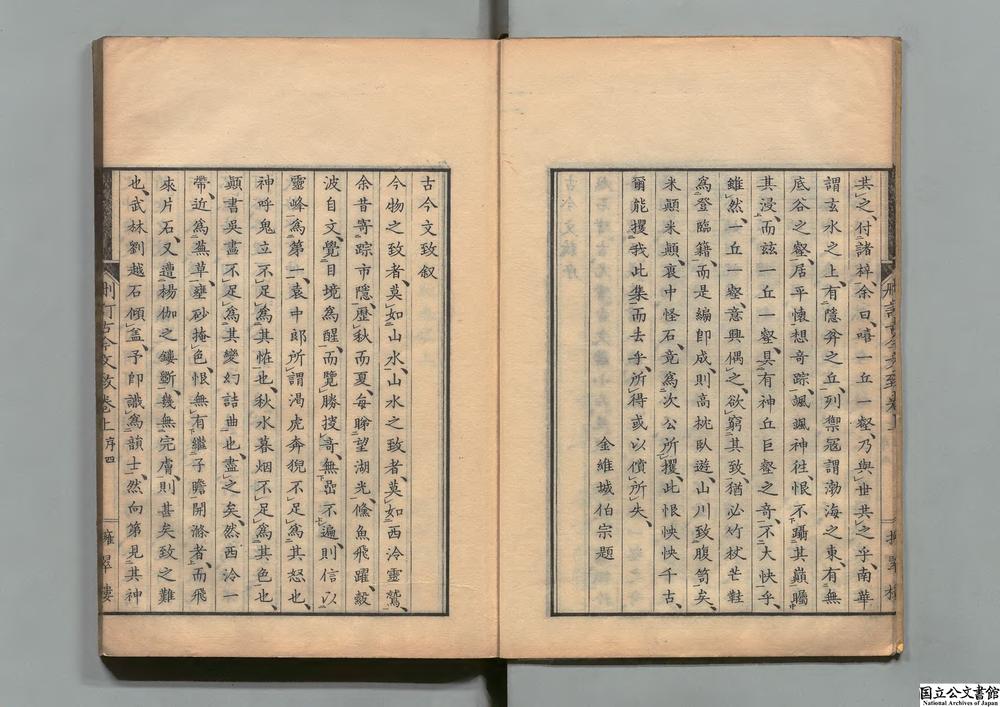 其之付諸梓余曰嘻一丘一壑乃與世共之乎南華
謂玄水之上有隱弅之丘列禦冦謂渤海之東有無
底谷之壑居平懐想竒踪諷諷神徃恨不躡其巔矚
其浸而兹一丘一壑具有神丘巨壑之竒不大快乎
雖然一丘一壑意興偶之欲窮其致猶必竹杖芒鞋
爲登臨籍而是編卽成則高枕臥遊山川致腹笥矣
米顛米顛袁中怪石竟爲次公所攫此恨怏怏千古
爾能攫我此集而去乎所得或以償所失
金維城伯宗題
古今文致叙
今物之致者莫如山水山水之致者莫如西泠靈鷲
余昔寄踪市隱歷秋而夏每睇望湖光鯈魚飛躍縠
波自文覺目境爲醒而覽勝披竒無嵒不遍則信以
靈峰爲第一袁中郎所謂渴虎奔猊不足爲其怒也
神呼鬼立不足爲其恠也秋水暮烟不足爲其色也
顛書吳畫不足爲其變幻詰曲也盡之矣然西泠一
帶近爲蕪草壅砂掩色恨無有繼子瞻開滌者而飛
來片石又遭楊伽之鏤斲幾無完膚則甚矣致之難
也武林劉越石傾盖予卽識爲韻士然向第見其神
刪訂古今文致卷上
序四
擁翠樓
国立公文書館
National Archives of Japan